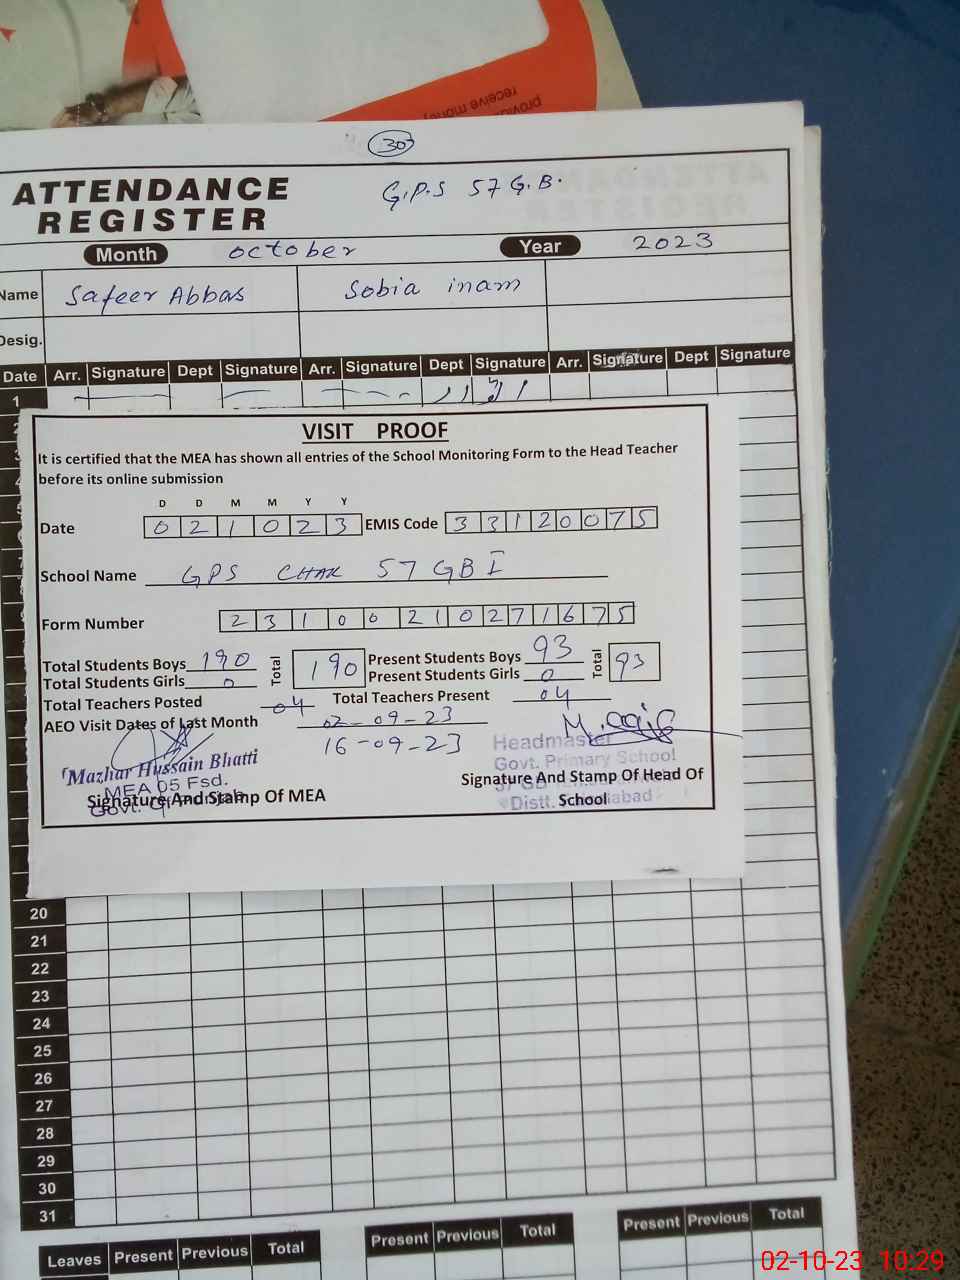 receive money
provid
30
ATTENDANCE
REGISTER
G.P.S 57 G.B.
Month October Year 2023
Name Safeer Abbas Sobia inam
Desig.
Date Arr. Signature Dept Signature Arr. Signature Dept Signature Arr. Signature Dept Signature
1
VISIT PROOF
It is certified that the MEA has shown all entries of the School Monitoring Form to the Head Teacher
before its online submission
D D M M Y Y
Date 0 2 1 0 2 3 EMIS Code 3 3 1 2 0 0 7 5
School Name GPS CHAK 57 GB I
Form Number 2 3 1 0 0 2 1 0 2 7 1 6 7 5
Total Students Boys 190 Total 190 Present Students Boys 93 Total 93
Total Students Girls 0 Present Students Girls 0
Total Teachers Posted 04 Total Teachers Present 04
AEO Visit Dates of Last Month 02-09-23
16-09-23
Mazhar Hussain Bhatti
MEA 05 Fsd.
Govt. Of
Signature And Stamp Of MEA
Headmaster
Govt. Primary School
57 GB
Distt.
Signature And Stamp Of Head Of
School
20
21
22
23
24
25
26
27
28
29
30
31
Leaves Present Previous Total Present Previous Total Present Previous Total
02-10-23 10:29